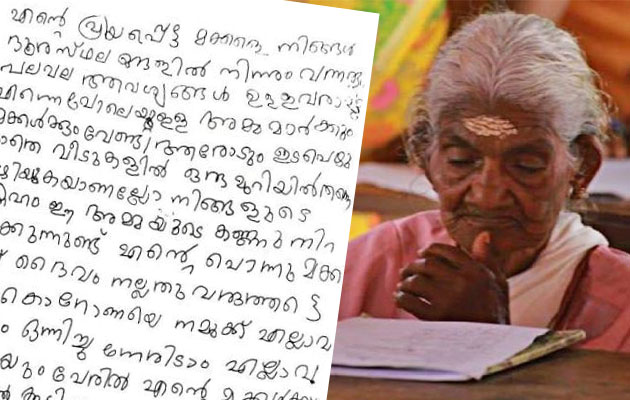 എന്റെ പ്രിയപ്പെട്ട മക്കളെ.. നിങ്ങൾ
ദൂരസ്ഥലങ്ങളിൽ നിന്നും വന്നതു
പലവല ആവശ്യങ്ങൾ ഉള്ളവരാ
എന്നെപോലെയുള്ള അമ്മമാർക്കും
മക്കൾക്കുംവേണ്ടി ആരോടും ഇടപെഴ
ാതെ വീടുകളിൽ ഒരു മുറിയിൽതന്നെ
ഴിയുകയാണല്ലോ നിങ്ങളുടെ
ഹം ഈ അമ്മയുടെ കണ്ണു നിറ
ക്കുന്നുണ്ട് എന്റെ പൊന്നു മക്ക
ദൈവം നല്ലതു വരുത്തട്ടെ
കൊറോണയെ നമുക്ക് എല്ലാവ
ം ഒന്നിച്ചു നേരിടാം എല്ലാവ
യും പേരിൽ എന്റെ